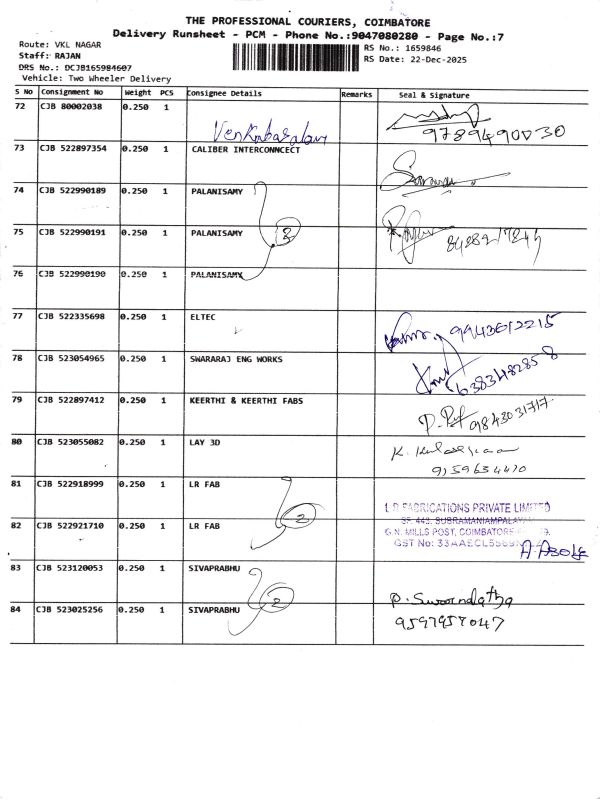 THE PROFESSIONAL COURIERS, COIMBATORE
Delivery Runsheet - PCM - Phone No.:9047080280 - Page No.:7
Route: VKL NAGAR
Staff: RAJAN
DRS No.: DCJB165984607
Vehicle: Two Wheeler Delivery
RS No.: 1659846
RS Date: 22-Dec-2025
S No Consignment No Weight PCS Consignee Details Remarks Seal & Signature
72 CJB 80002038 0.250 1 9789490030
73 CJB 522897354 0.250 1 CALIBER INTERCONNCECT
74 CJB 522990189 0.250 1 PALANISAMY
75 CJB 522990191 0.250 1 PALANISAMY 3
76 CJB 522990190 0.250 1 PALANISAMY
77 CJB 522335698 0.250 1 ELTEC 9943612215
78 CJB 523054965 0.250 1 SWARARAJ ENG WORKS
79 CJB 522897412 0.250 1 KEERTHI & KEERTHI FABS 9843031717
80 CJB 523055082 0.250 1 LAY 3D
9159634410
81 CJB 522918999 0.250 1 LR FAB
L R FABRICATIONS PRIVATE LIMITED
82 CJB 522921710 0.250 1 LR FAB 2
SF. 443, SUBRAMANIAMPALAY
G.N. MILLS POST, COIMBATORE
GST No: 33AAECL5569
83 CJB 523120053 0.250 1 SIVAPRABHU
84 CJB 523025256 0.250 1 SIVAPRABHU 2
9597957047